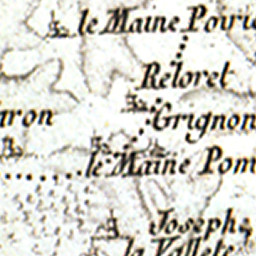 le Maine Poirie
Reloret
Grignon
iron
le Maine Pom
Joseph
la Vallete